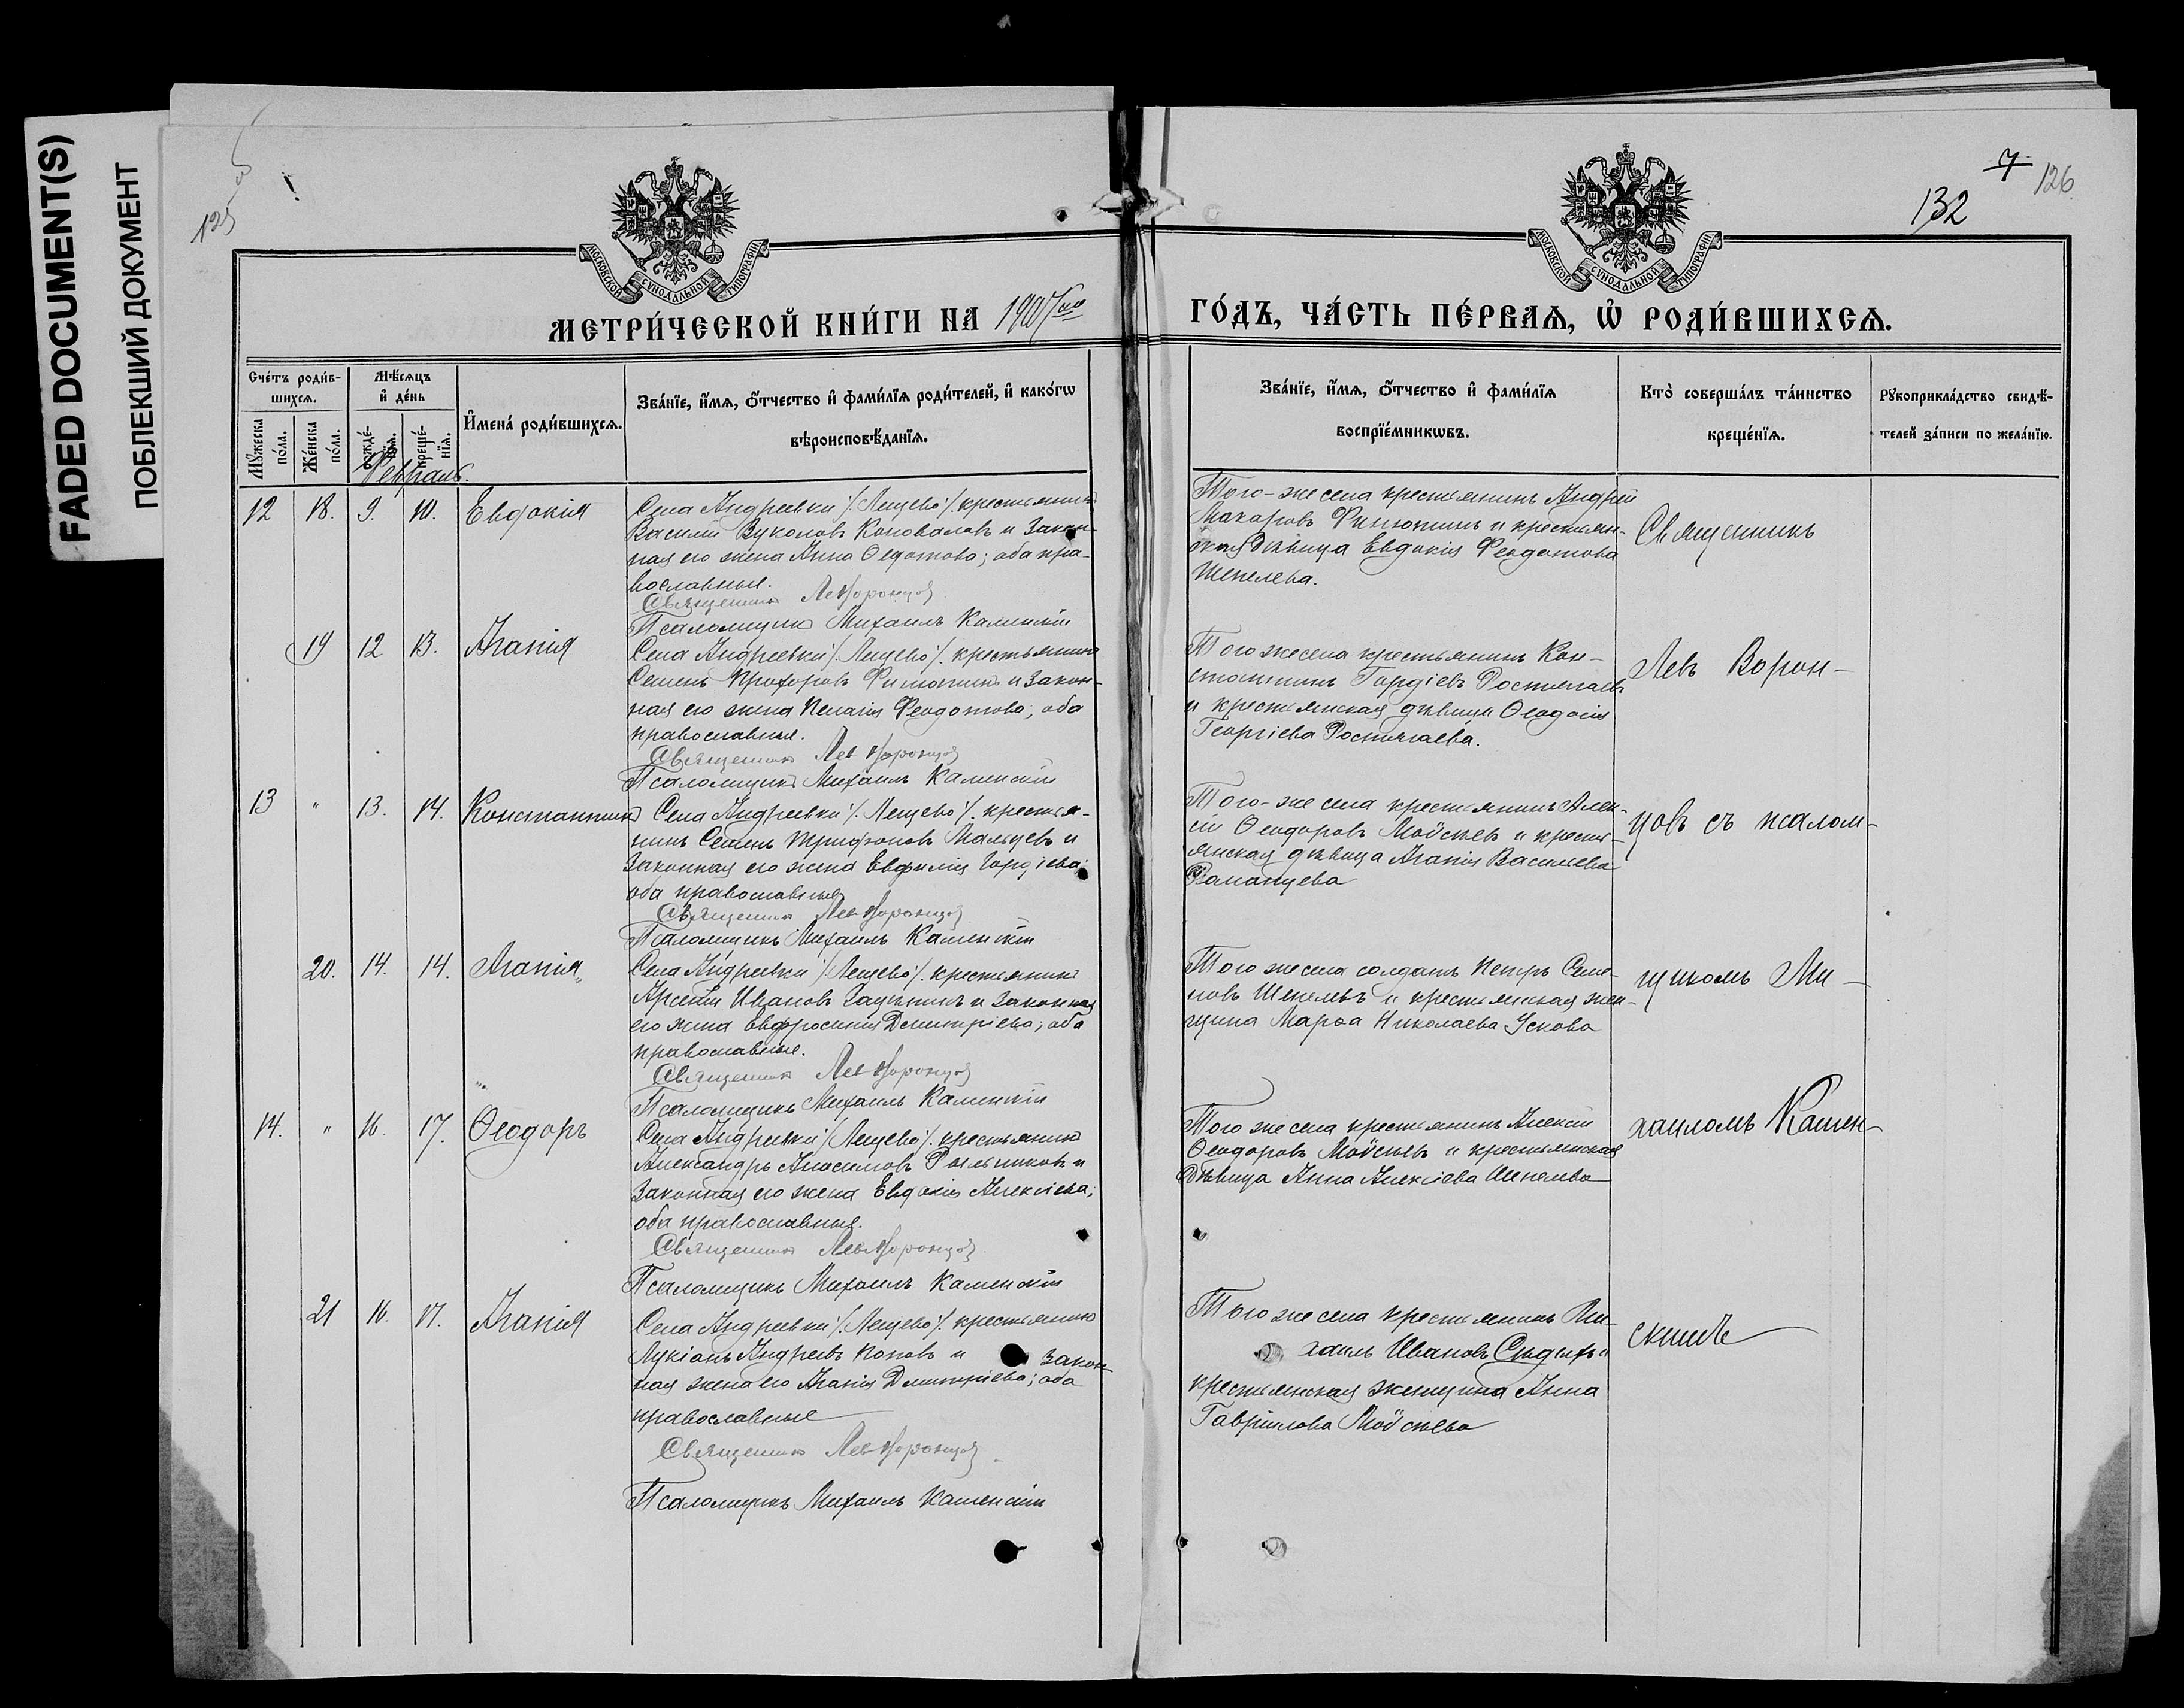 FADED DOCUMENT(S)
ПОБЛЕКШИЙ ДОКУМЕНТ
125
7
126
132
МОСКОВСКОЙ СѴНОДАЛЬНОЙ ТИПОГРАФІИ
МОСКОВСКОЙ СѴНОДАЛЬНОЙ ТИПОГРАФІИ
МЕТРИ́ЧЕСКОЙ КНИ́ГИ НА
ГО́ДЪ, ЧА́СТЬ ПЕ́РВАѦ, Ѡ҆ РОДИ́ВШИХСѦ.
Сче́тъ роди́в-
шихсѧ.
Мѣ́сѧцъ
и҆ де́нь
Мꙋ́жеска по́ла.
Же́нска по́ла.
рожде́-нїѧ.
креще́-нїѧ.
И҆мена̀ роди́вшихсѧ.
Зва́нїе, и҆́мѧ, ѻ҆́тчество и҆ фами́лїѧ роди́телей, и҆ како́гѡ
вѣроисповѣ́данїѧ.
Зва́нїе, и҆́мѧ, ѻ҆́тчество и҆ фами́лїѧ
воспрїе́мникѡвъ.
Кто̀ соверша́лъ та́инство
креще́нїѧ.
Рꙋкоприкла́дство свидѣ́-
телей за́писи по жела́нїю.
Февраль.
12 18. 9. 10. Евдокія
Села Андреевки /. Лещево /. крестьянинъ
Василій Вуколовъ Коноваловъ и закон-
ная его жена Анна Ѳедотова; оба пра-
вославные.
Священникъ Лев Воронцов
Псаломщикъ Михаилъ Каменскій
Того-же села крестьянинъ Андрей
Макаровъ Филюшинъ и крестьян-
ская дѣвица Евдокія Феодотова
Шепелева.
19 12 13. Агапія
Села Андреевки /. Лещево /. крестьянинъ
Семенъ Прохоровъ Филюшинъ и закон-
ная его жена Пелагія Феодотова, оба
православные.
Священникъ Лев Воронцов
Псаломщикъ Михаилъ Каменскій
Того же села крестьянинъ Кон-
стантинъ Гордіевъ
и крестьянская дѣвица Ѳеодосія
Георгіева
13 " 13. 14. Константинъ
Села Андреевки /. Лещево /. крестья-
нинъ Семенъ Трифоновъ Мальцевъ и
законная его жена Евфимія Гордіева;
оба православные
Священникъ Лев Воронцов
Псаломщикъ Михаилъ Каменскій
Того-же села крестьянинъ Алек-
сій Ѳеодоровъ Мойсѣевъ и кресть-
янская дѣвица Агапія Васильева
20. 14. 14. Агапія
Села Андреевки /. Лещево /. крестьянинъ
Арсеній Ивановъ и законная
его жена Евфросинія Димитріева; оба
православные.
Священникъ Лев Воронцов
Псаломщикъ Михаилъ Каменскій
Того же села солдатъ Петръ Семе-
новъ Шепелевъ и крестьянская жен-
щина Марѳа Николаева Ускова
14. " 16. 17. Ѳеодоръ
Села Андреевки /. Лещево /. крестьянинъ
Александръ Анисимовъ и
законная его жена Евдокія Алексіева;
оба православные.
Священникъ Лев Воронцов
Псаломщикъ Михаилъ Каменскій
Того же села крестьянинъ Алексій
Ѳеодоровъ Мойсѣевъ и крестьянская
дѣвица Анна Алексіева Шепелева
21 16. 17. Агапія
Села Андреевки /. Лещево /. крестьянинъ
Лукіанъ Андреевъ Поповъ и закон-
ная жена его Агапія Димитріева; оба
православные
Священникъ Лев Воронцов
Псаломщикъ Михаилъ Каменскій
Того же села крестьянинъ Ми-
хаилъ Ивановъ и
крестьянская женщина Анна
Гавріилова Мойсѣева
Священникъ
Левъ Ворон-
цовъ съ псалом-
щикомъ Ми-
хаиломъ Камен-
скимъ